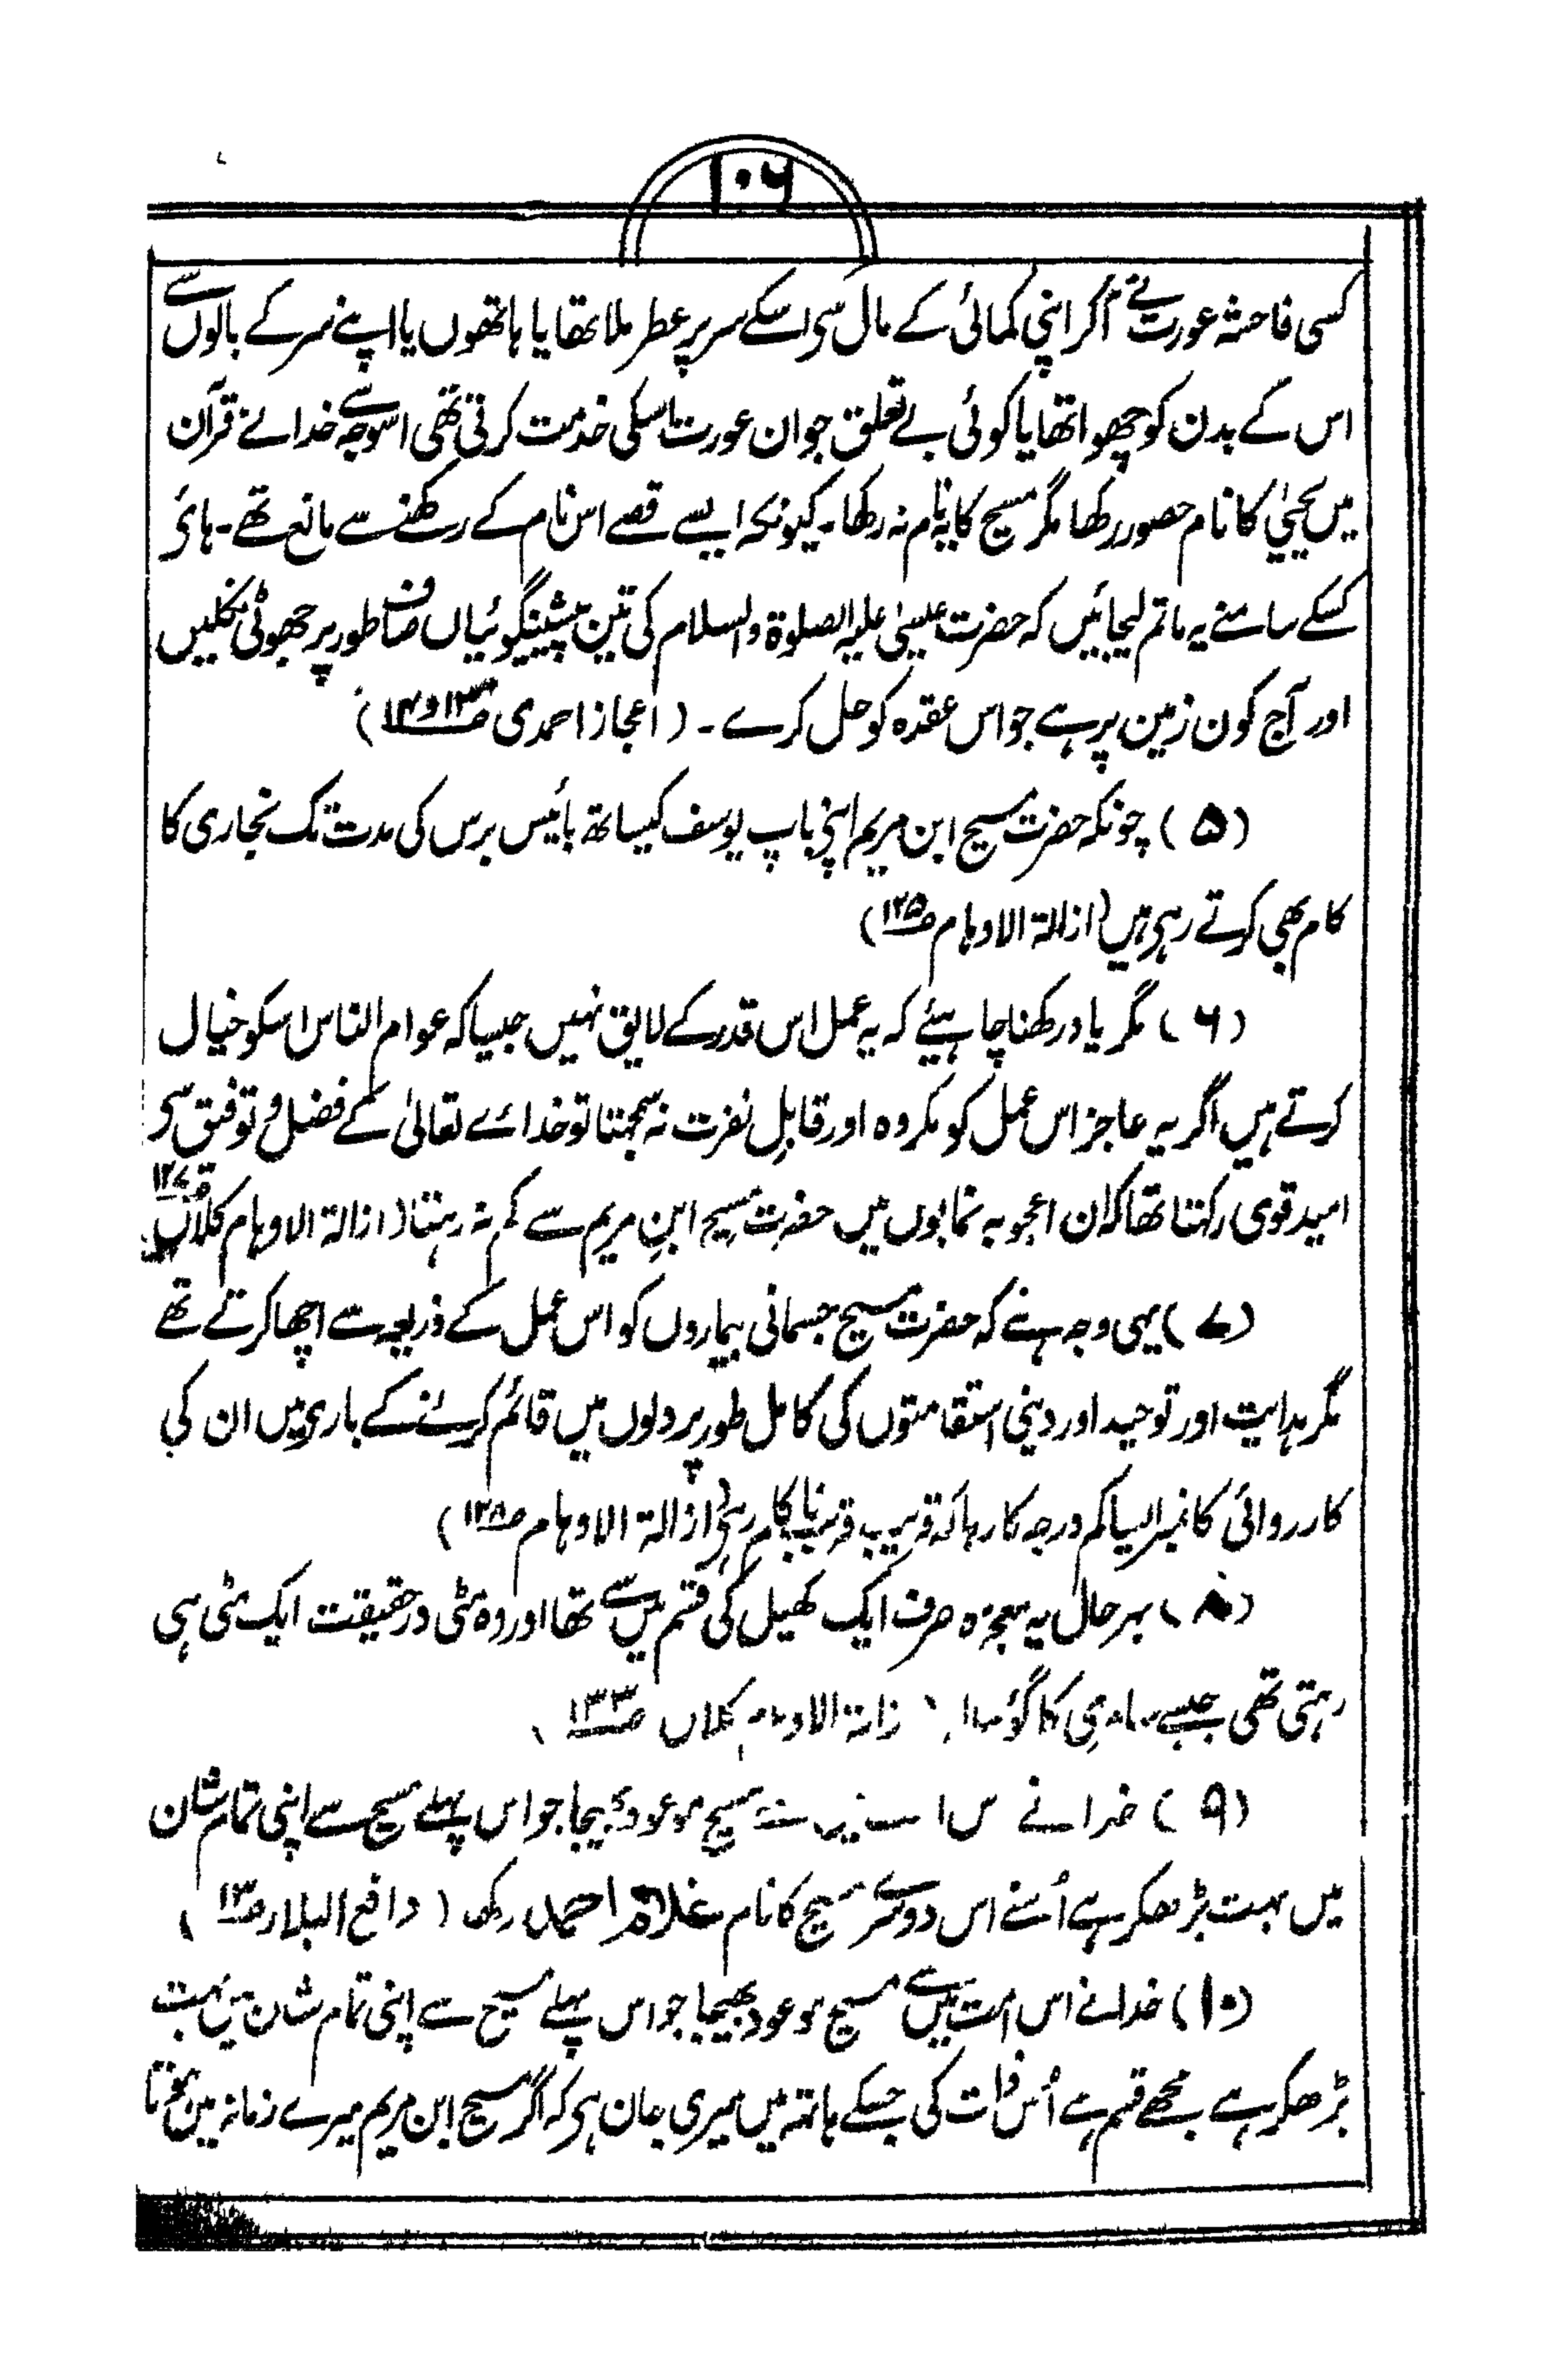 ۱۰۶
کسی فاحشہ عورت نے آکر اپنی کمائی کے مال سے اسکے سر پر عطر ملا تھا یا ہاتھوں یا اپنے سر کے بالوں سے
اس کے بدن کو چھوا تھا یا کوئی بے تعلق جوان عورت اسکی خدمت کرتی تھی اسوجہ سے خدا نے قرآن
میں یحییٰ کا نام حصور رکھا مگر مسیح کا یہ نام نہ رکھا۔ کیونکہ ایسے قصے اس نام کے رکھنے سے مانع تھے۔ ہائے
کسکے سامنے یہ ماتم لیجائیں کہ حضرت عیسیٰ علیہ الصلوٰۃ والسلام کی تین پیشینگوئیاں صاف طور پر جھوٹی نکلیں
اور آج کون زمین پر ہے جو اس عقدہ کو حل کرے۔ (اعجاز احمدی ص۱۳ و ۱۴)
(۵) چونکہ حضرت مسیح ابن مریم اپنی باپ یوسف کیساتھ بائیس برس کی مدت تک نجاری کا
کام بھی کرتے رہے ہیں (ازالۃ الاوہام ص۱۲۵)
(۶) مگر یاد رکھنا چاہیئے کہ یہ عمل اس قدر کے لایق نہیں جیسا کہ عوام الناس اسکو خیال
کرتے ہیں اگر یہ عاجز اس عمل کو مکروہ اور قابلِ نفرت نہ سمجھتا تو خدائے تعالیٰ کے فضل و توفیق سے
امید قوی رکھتا تھا کہ ان اعجوبہ نمایوں میں حضرت مسیح ابنِ مریم سے کم نہ رہتا (ازالۃ الاوہام کلاں ص۱۲۷
(۷) یہی وجہ ہے کہ حضرت مسیح جسمانی بیماروں کو اس عمل کے ذریعہ سے اچھا کرتے تھے
مگر ہدایت اور توحید اور دینی استقامتوں کی کامل طور پر دلوں میں قائم کرنے کے بارے میں ان کی
کارروائی کا نمبر ایسا کم درجہ کا رہا کہ قریب قریب ناکام رہے (ازالۃ الاوہام ص۱۲۸)
(۸) بہر حال یہ معجزہ صرف ایک کھیل کی قسم میں سے تھا اور وہ مٹی درحقیقت ایک مٹی ہی
رہتی تھی جیسے سامری کا گوسالہ (ازالۃ الاوہام کلاں ص۱۳۳)
(۹) خدا نے اس امت میں سے مسیح موعود بھیجا جو اس پہلے مسیح سے اپنی تمام شان
میں بہت بڑھکر ہے اُسنے اس دوسرے مسیح کا نام غلام احمد رکھا (دافع البلاء ص۱۳)
(۱۰) خدا نے اس امت میں سے مسیح موعود بھیجا جو اس پہلے مسیح سے اپنی تمام شان میں بہت
بڑھکر ہے مجھے قسم ہے اُس ذات کی جسکے ہاتھ میں میری جان ہے کہ اگر مسیح ابن مریم میرے زمانہ میں ہوتا